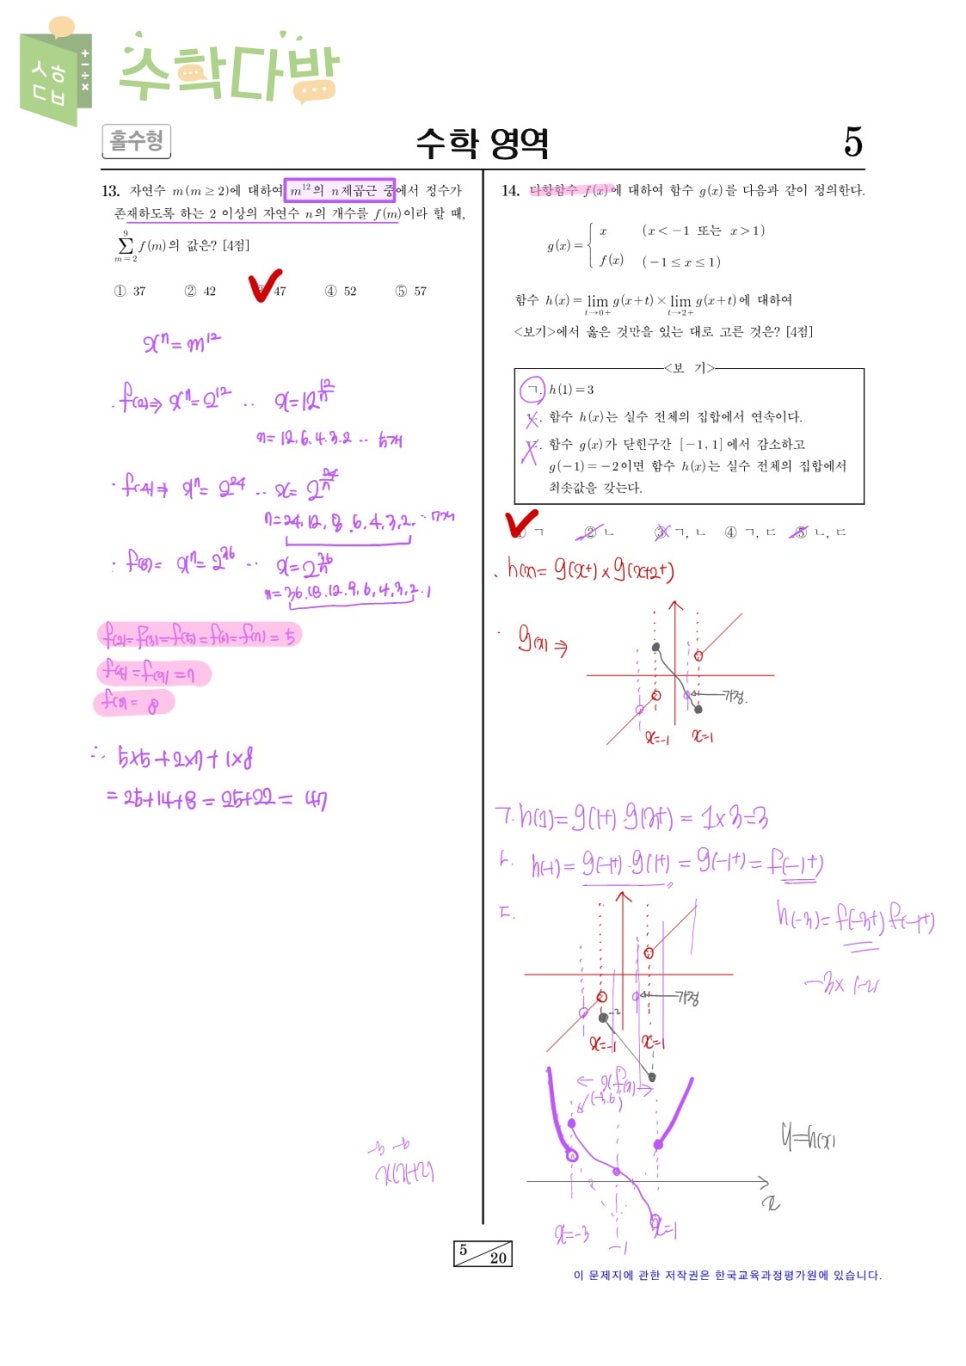 수학다방
홀수형
수학 영역
5
13. 자연수 m(m≥2)에 대하여 m¹²의 n제곱근 중에서 정수가
존재하도록 하는 2 이상의 자연수 n의 개수를 f(m)이라 할 때,
∑_{m=2}^{9} f(m)의 값은? [4점]
① 37 ② 42 ③ 47 ④ 52 ⑤ 57
xⁿ = m¹²
n = 12, 6, 4, 3, 2 ‥ 5개
n = 24, 12, 8, 6, 4, 3, 2 ‥ 7개
n = 36, 18, 12, 9, 6, 4, 3, 2
∴ 5×5 + 2×7 + 1×8
= 25+14+8 = 25+22 = 47
14. 다항함수 f(x)에 대하여 함수 g(x)를 다음과 같이 정의한다.
g(x) = { x (x<-1 또는 x>1)
f(x) (-1≤x≤1)
함수 h(x) = lim_{t→0+} g(x+t) × lim_{t→2+} g(x+t)에 대하여
<보기>에서 옳은 것만을 있는 대로 고른 것은? [4점]
<보 기>
ㄱ. h(1)=3
ㄴ. 함수 h(x)는 실수 전체의 집합에서 연속이다.
ㄷ. 함수 g(x)가 닫힌구간 [-1, 1]에서 감소하고
g(-1)=-2이면 함수 h(x)는 실수 전체의 집합에서
최솟값을 갖는다.
① ㄱ ② ㄴ ③ ㄱ, ㄴ ④ ㄱ, ㄷ ⑤ ㄴ, ㄷ
h(x) = g(x+) × g(x+2+)
g(x) ⇒
가정.
x=-1 x=1
ㄱ. h(1) = g(1+) · g(3+) = 1×3 = 3
ㄴ. h(-1) = g(-1+) · g(1+) = g(-1+) = f(-1+)
ㄷ.
h(-3) = f(-3+) f(-1+)
가정
-2
x=-1 x=1
y=h(x)
x
x=-3 -1 x=1
5 20
이 문제지에 관한 저작권은 한국교육과정평가원에 있습니다.